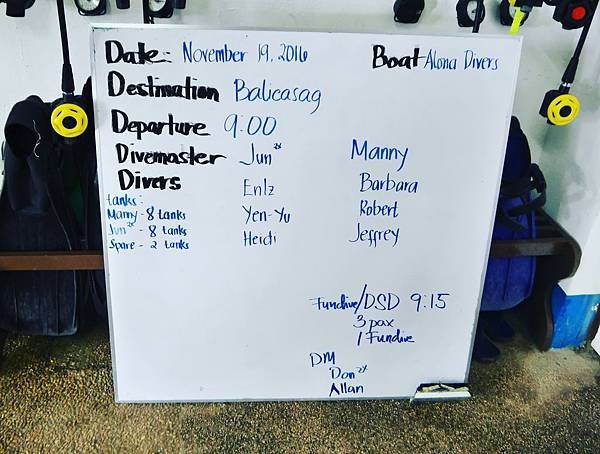 Date: November 19, 2016 Boat Alona Divers
Destination Balicasag
Departure 9:00
Divemaster Jun Manny
Divers Enlz Barbara
tanks: Yen-Yu Robert
Manny - 8 tanks Heidi Jeffrey
Jun - 8 tanks
Spare - 2 tanks
Fundive/DSD 9:15
3 pax
1 Fundive
DM
Don
Allan